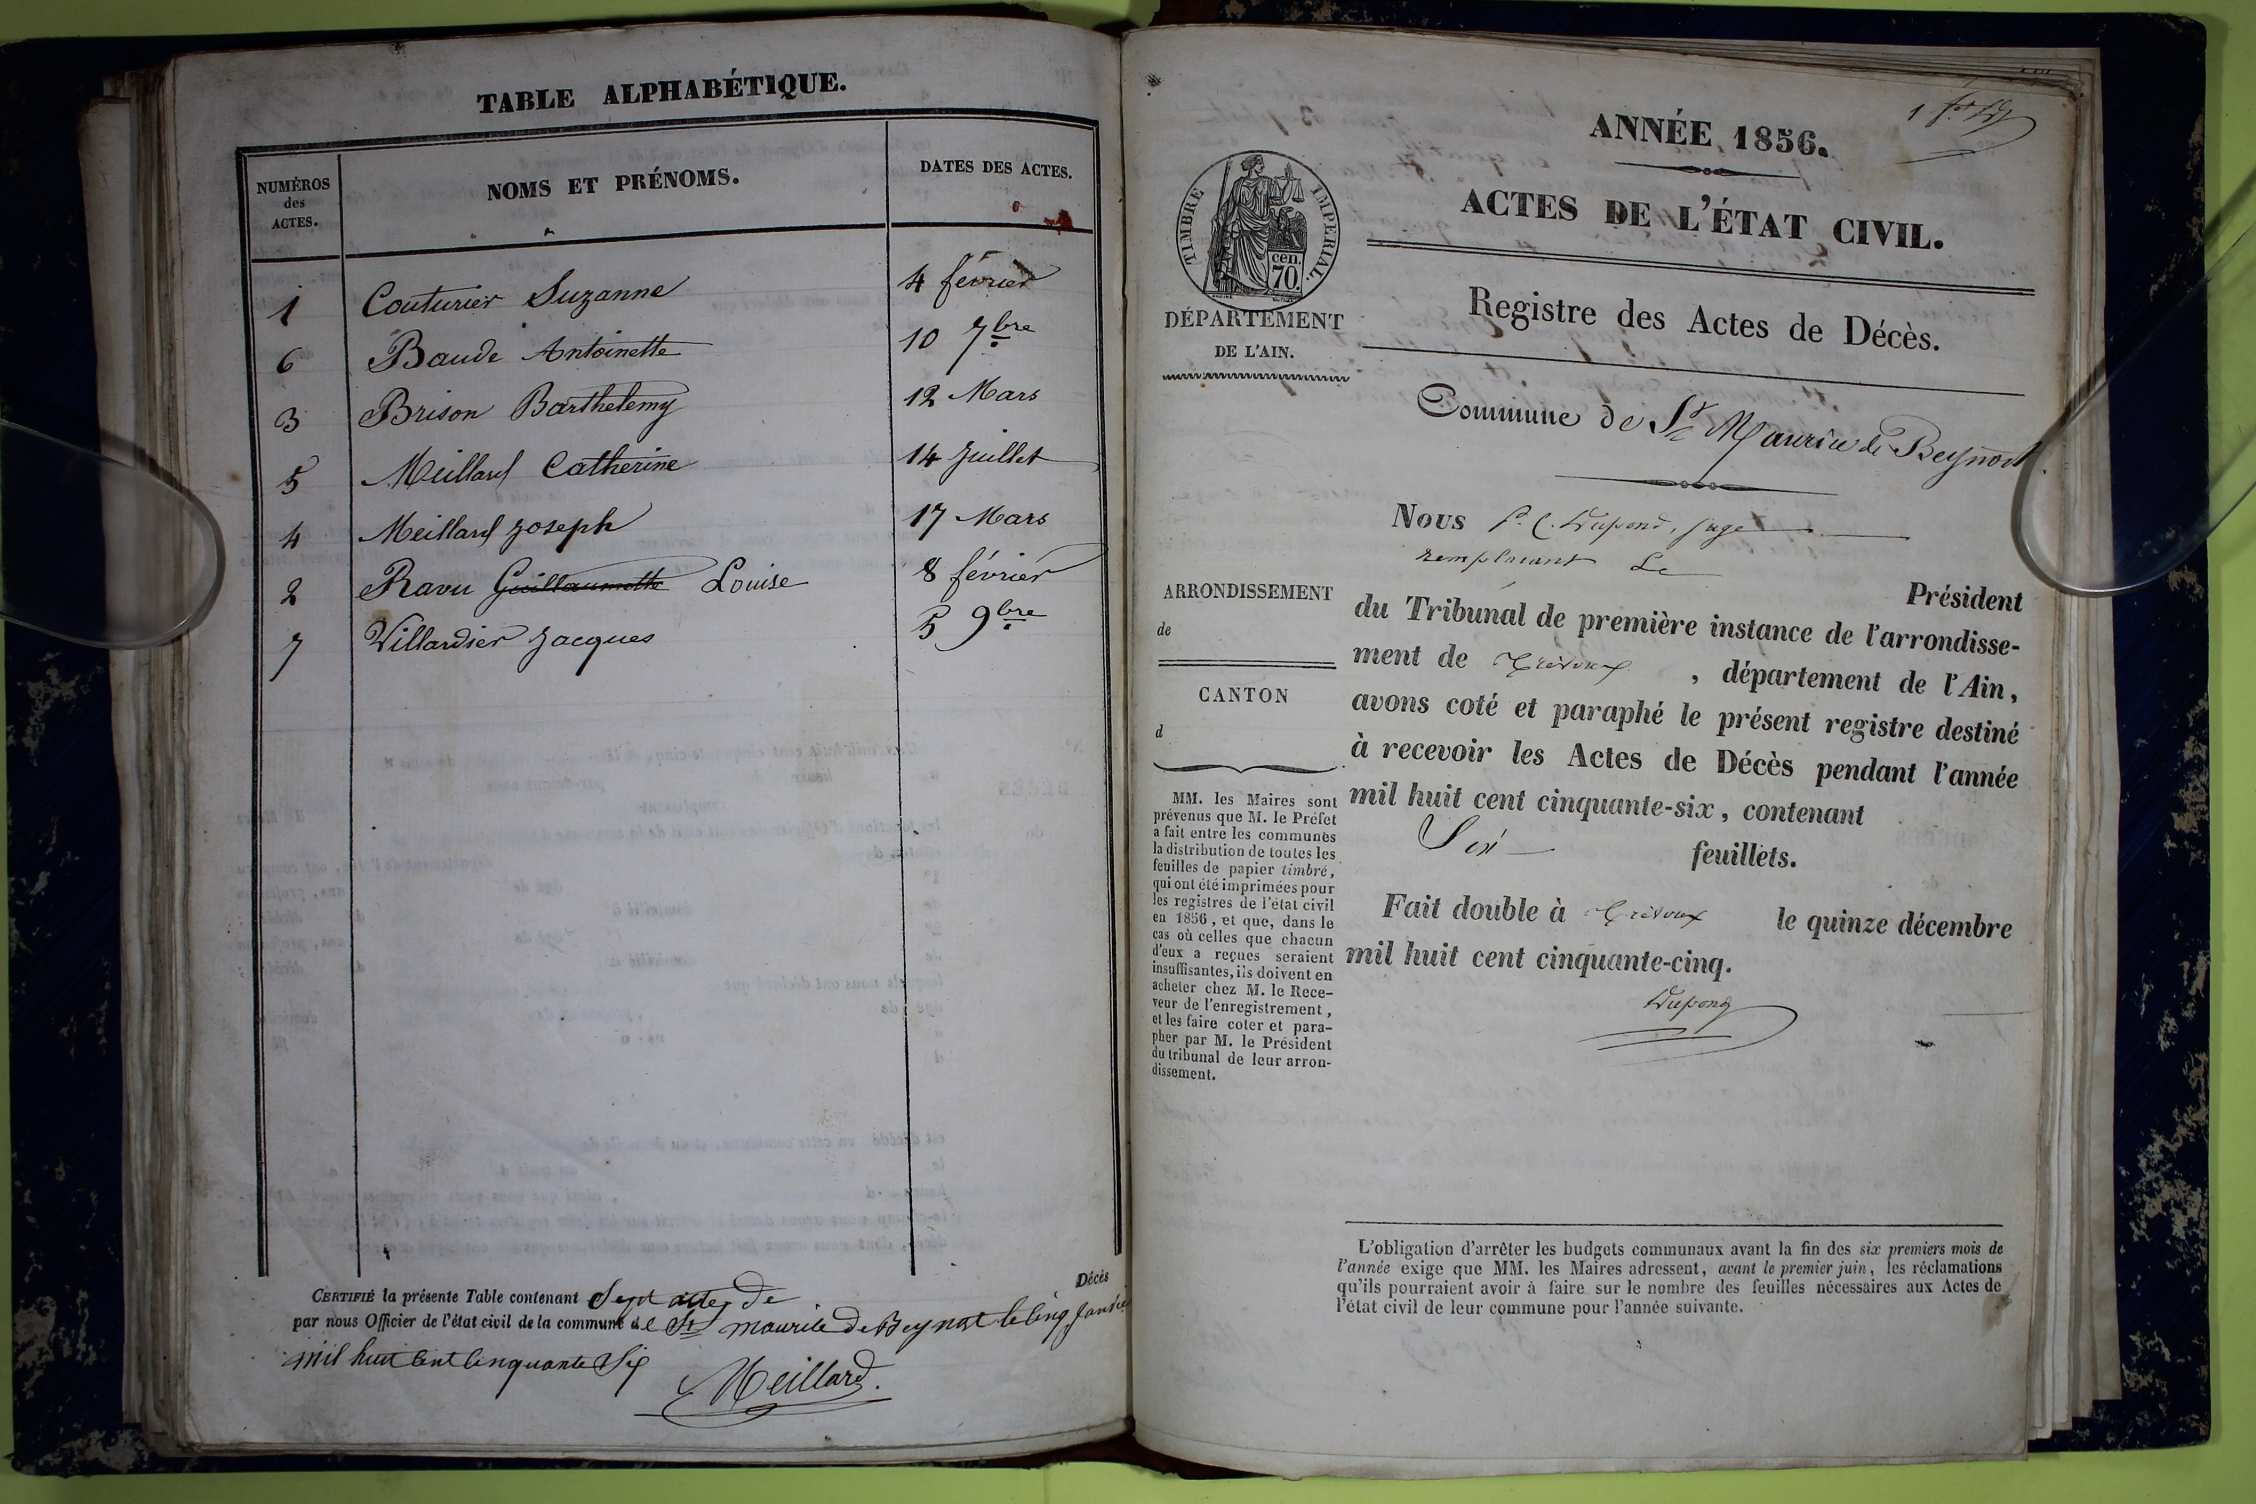 TABLE ALPHABÉTIQUE.
NUMÉROS des ACTES.
NOMS ET PRÉNOMS.
DATES DES ACTES.
1 Couturier Suzanne 4 février
6 Baude Antoinette 10 7bre
3 Brison Barthelemy 12 Mars
5 Meillard Catherine 14 Juillet
4 Meillard Joseph 17 Mars
2 Ravu Guillaumette Louise 8 février
7 Villardier Jacques 5 9bre
CERTIFIÉ la présente Table contenant Sept actes de Décès
par nous Officier de l'état civil de la commune de St maurice de Beynost le cinq Janvier
mil huit cent cinquante Six
Meillard.
ANNÉE 1856.
ACTES DE L'ÉTAT CIVIL.
TIMBRE IMPERIAL.
cen.
70.
DÉPARTEMENT
DE L'AIN.
Registre des Actes de Décès.
Commune de St Maurice de Beynost
Nous P. C. Dupond, Juge
remplacant Le
Président
du Tribunal de première instance de l'arrondisse-
ment de Trévoux, département de l'Ain,
avons coté et paraphé le présent registre destiné
à recevoir les Actes de Décès pendant l'année
mil huit cent cinquante-six, contenant
Six feuillets.
Fait double à Trévoux le quinze décembre
mil huit cent cinquante-cinq.
Dupond
ARRONDISSEMENT
de
CANTON
d
MM. les Maires sont
prévenus que M. le Préfet
a fait entre les communes
la distribution de toutes les
feuilles de papier timbré,
qui ont été imprimées pour
les registres de l'état civil
en 1856, et que, dans le
cas où celles que chacun
d'eux a reçues seraient
insuffisantes, ils doivent en
acheter chez M. le Rece-
veur de l'enregistrement,
et les faire coter et para-
pher par M. le Président
du tribunal de leur arron-
dissement.
L'obligation d'arrêter les budgets communaux avant la fin des six premiers mois de
l'année exige que MM. les Maires adressent, avant le premier juin, les réclamations
qu'ils pourraient avoir à faire sur le nombre des feuilles nécessaires aux Actes de
l'état civil de leur commune pour l'année suivante.